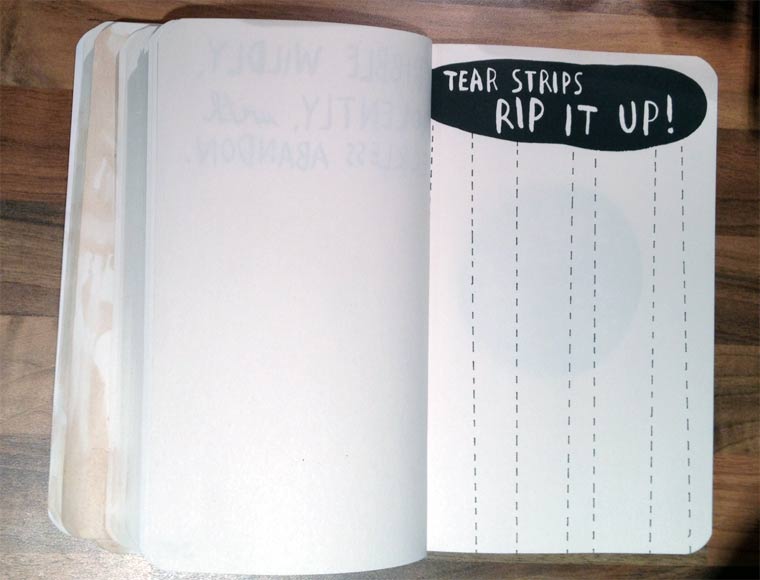 TEAR STRIPS
RIP IT UP!